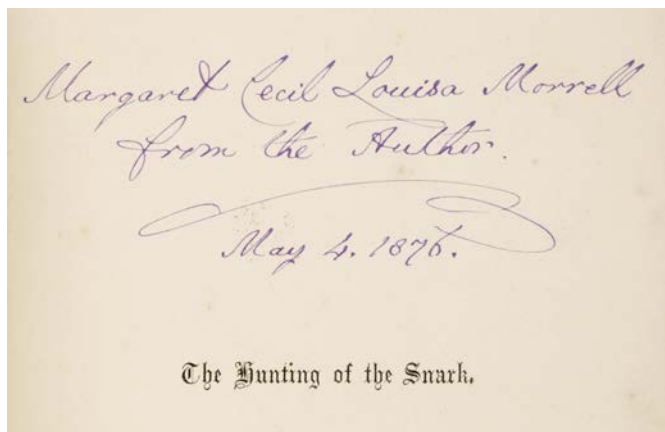 Margaret Cecil Louisa Morrell
from the Author.
May 4. 1876.
The Hunting of the Snark.